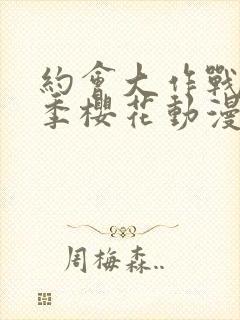 約會大作戰
季櫻花動漫
周梅森..